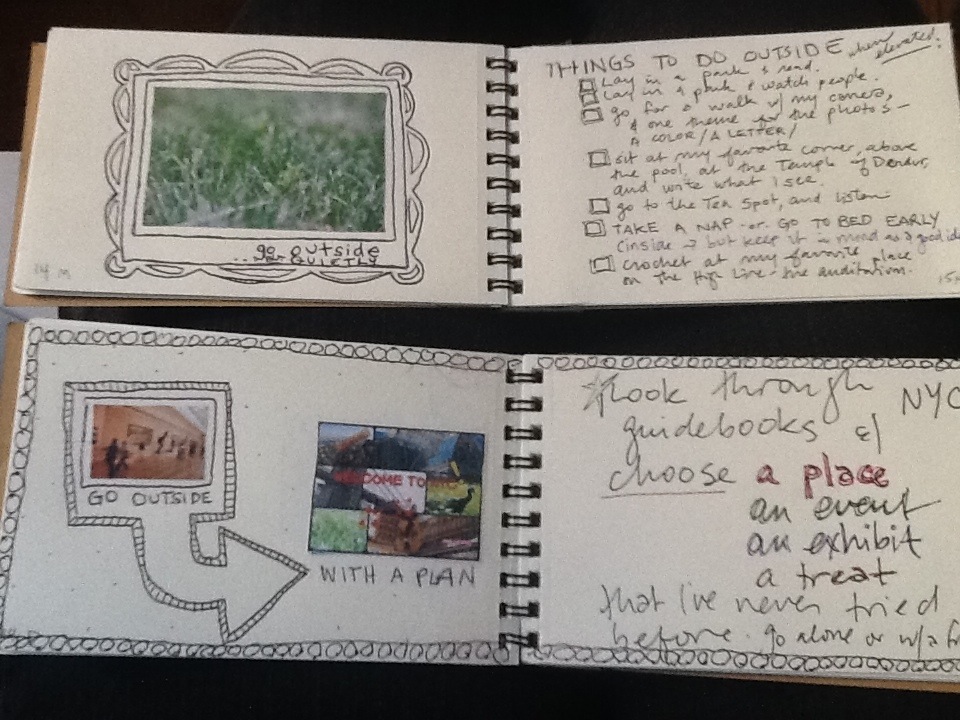 go outside
... QUIETLY
14 m
THINGS TO DO OUTSIDE when elevated:
Lay in a park & read.
Lay in a park & watch people.
go for a walk w/ my camera,
& one theme for the photos -
A COLOR/A LETTER/
sit at my favorite corner, above
the pool, at the Temple of Dendur,
and write what I see.
go to the Tea Spot, and listen
TAKE A NAP -or- GO TO BED EARLY
(inside → but keep it in mind as a good ide
crochet at my favorite place
on the High Line - the auditation.
GO OUTSIDE
WITH A PLAN
look through NYC
guidebooks &
choose a place
an event
an exhibit
a treat
that I've never tried
before. go alone or w/a fr